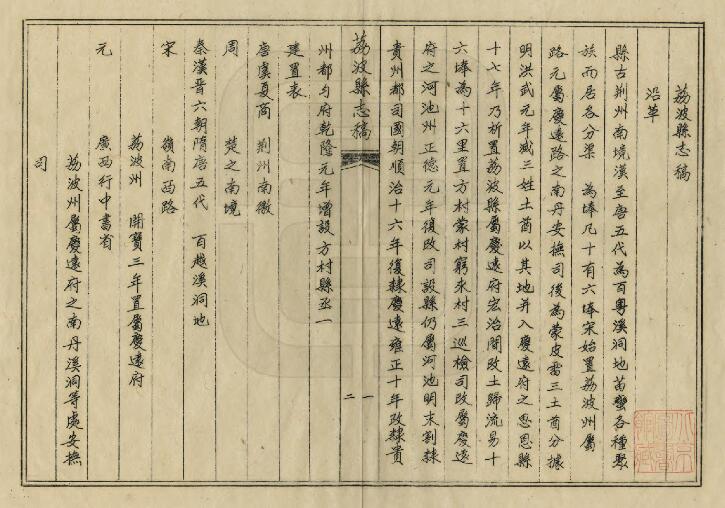 荔波縣志稿
沿革
縣古荆州南境漢至唐五代為百粤溪洞地苗蠻各種聚
族而居各分渠 為埲凡十有六埲宋始置荔波州屬
路元屬慶遠路之南丹安撫司後為蒙皮雷三土酋分據
明洪武元年滅三姓土酋以其地并入慶遠府之思恩縣
十七年乃析置荔波縣屬慶遠府宏治間改土歸流易十
六埲為十六里置方村蒙村窮來村三巡檢司改屬慶遠
府之河池州正德元年復改司設縣仍屬河池明末割隸
貴州都司國朝順治十六年復隸慶遠雍正十年改隸貴
荔波縣志稿
一
二
州都勻府乾隆元年增設方村縣丞一
建置表
唐虞夏商 荆州南徼
周 楚之南境
秦漢晉六朝隋唐五代 百越溪洞地
宋 嶺南西路
荔波州 開寶三年置屬慶遠府
元 廣西行中書省
荔波州屬慶遠府之南丹溪洞等處安撫
司